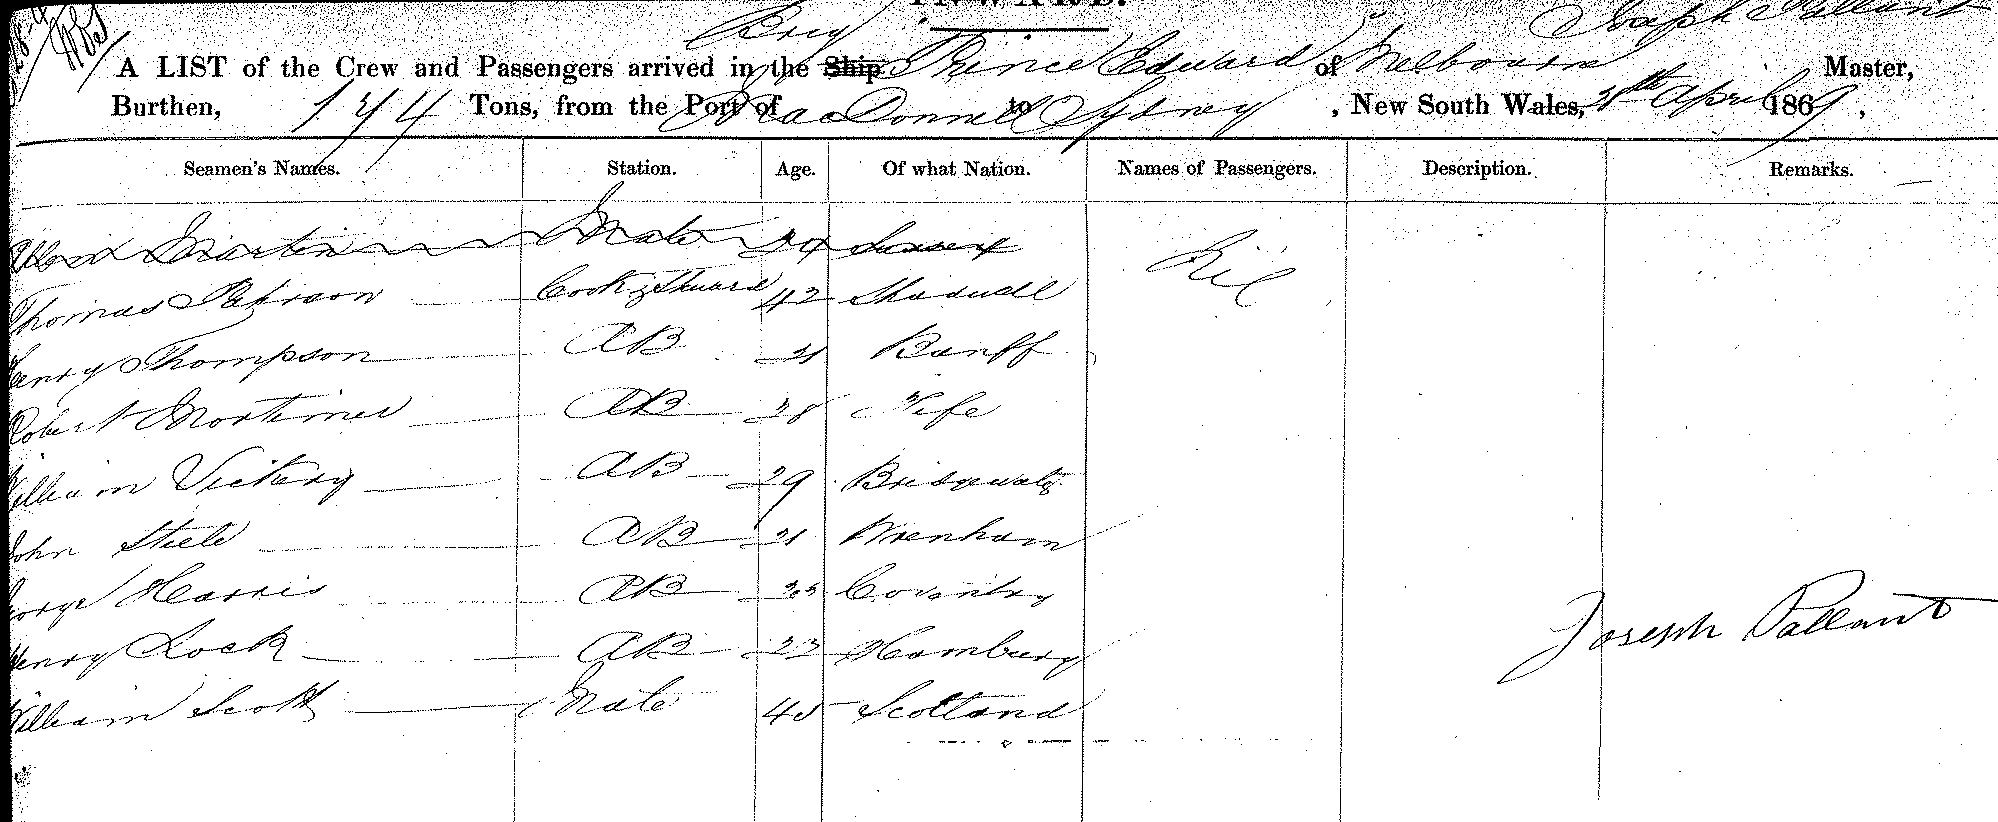 INWARD.
Brig Joseph Pallant
A LIST of the Crew and Passengers arrived in the Ship Prince Edward of Melbourne Master,
Burthen, 174 Tons, from the Port of MacDonnell to Sydney, New South Wales, April 1869,
Seamen's Names. Station. Age. Of what Nation. Names of Passengers. Description. Remarks.
Martin Mate Sussex Nil
Thomas Cook & Steward 42 Shadwell
Henry Thompson AB 21 Banff
Robert Mortimer AB 28 Fife
William Vickery AB 29 Bridgwater
John Steele AB 21 Wrenham
George Harris AB Coventry
Henry Lock AB 23 Hamburg
Joseph Pallant
William Scott Mate 45 Scotland